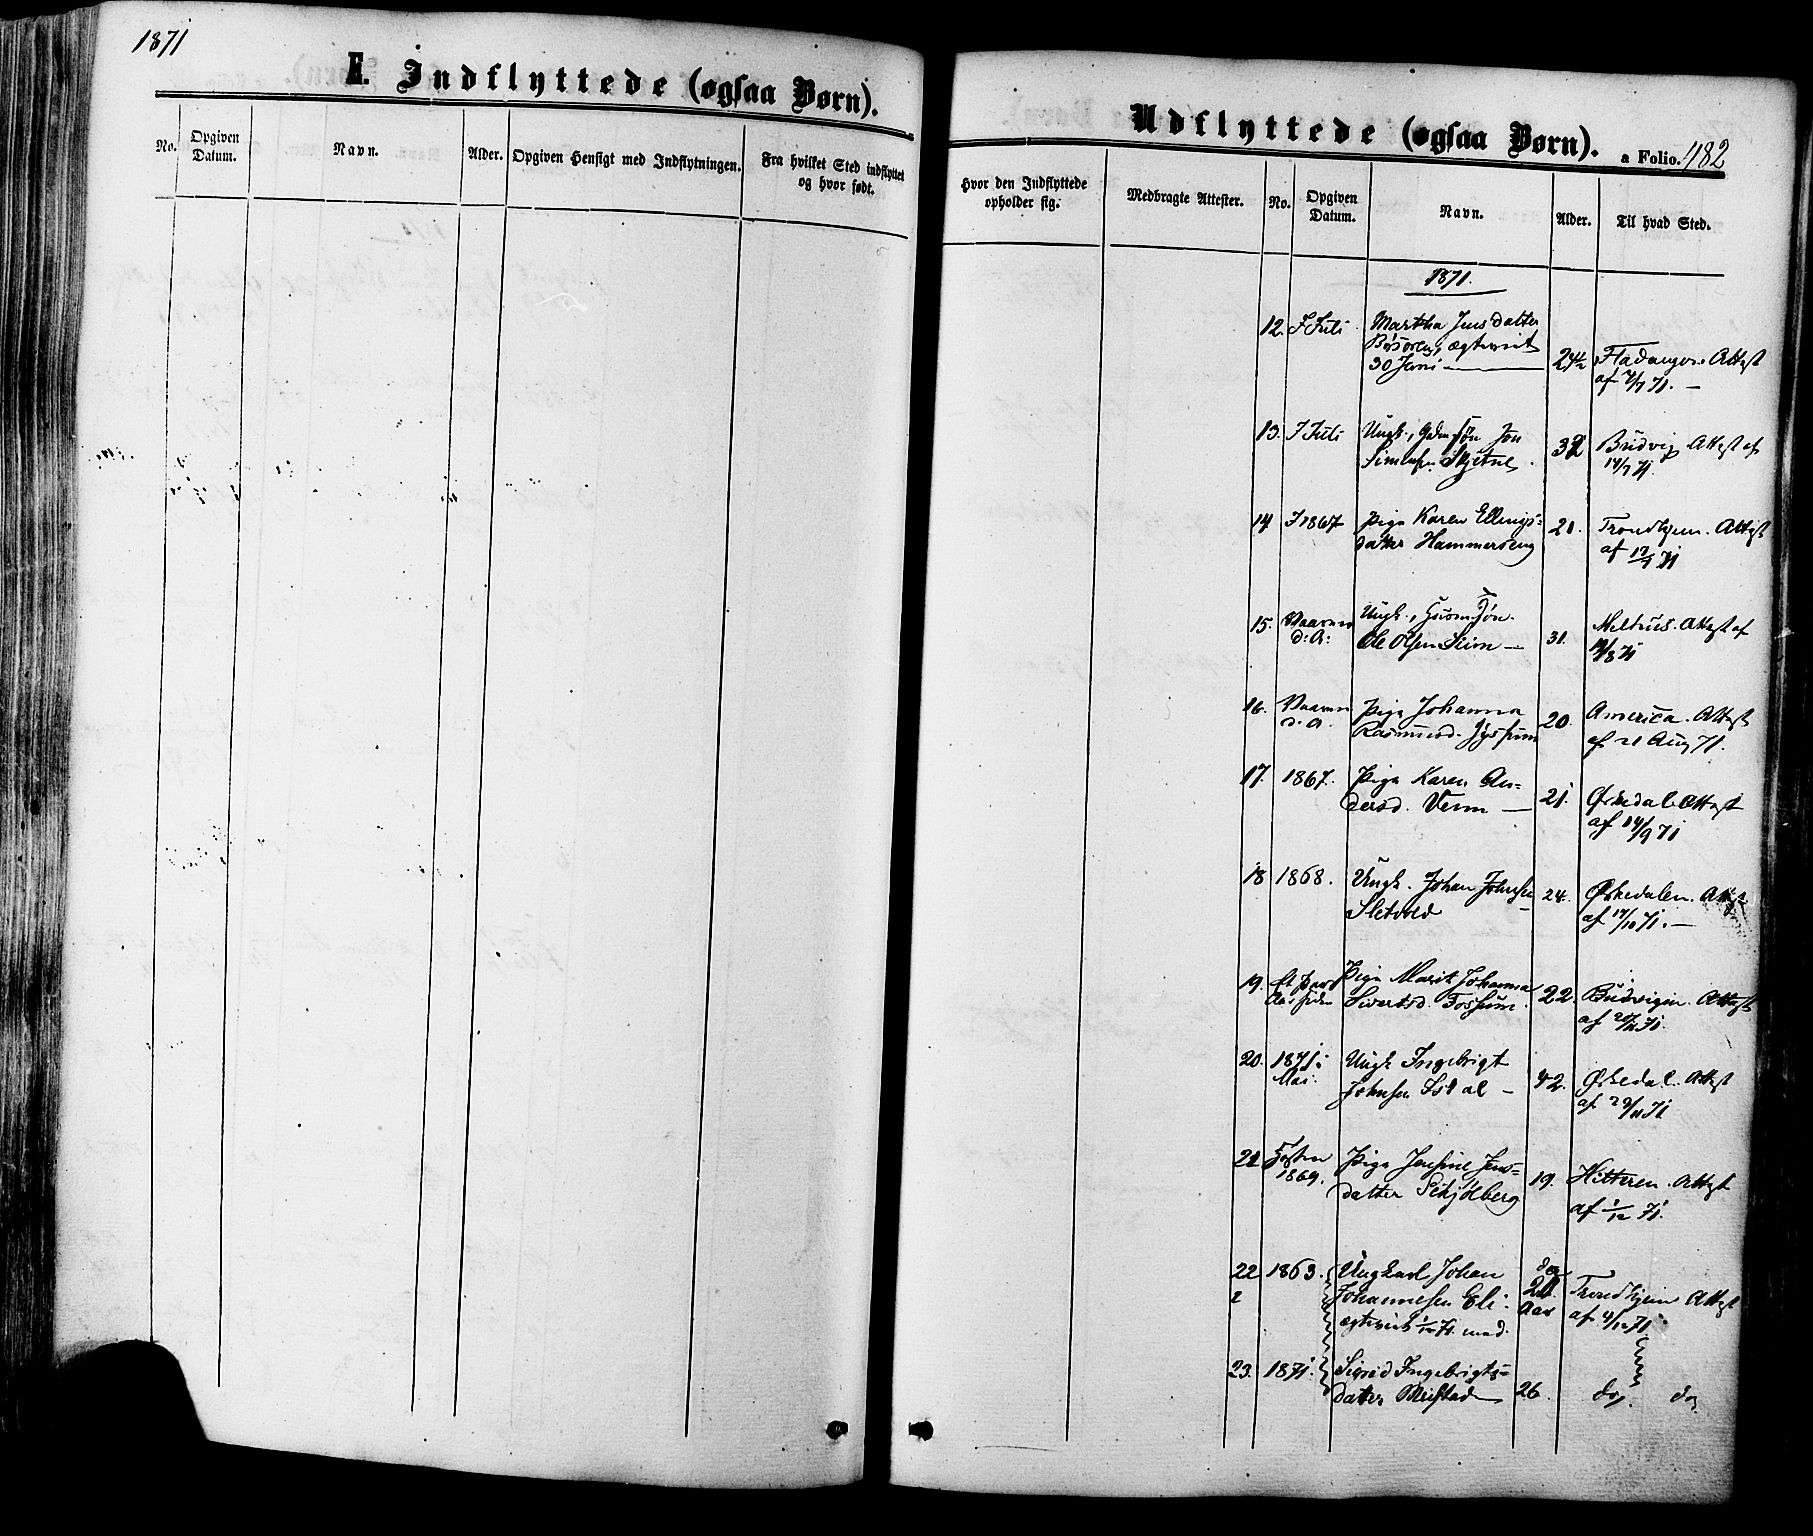 1871
E. Indflyttede (ogsaa Børn).
No.
Opgiven Datum.
Navn.
Alder.
Opgiven Hensigt med Indflytningen.
Fra hvilket Sted indflyttet og hvor født.
Udflyttede (ogsaa Børn).
a Folio. 482
Hvor den Indflyttede opholder sig.
Medbragte Attester.
No.
Opgiven Datum.
Navn.
Alder.
Til hvad Sted.
1871.
12. Juli Martha Jensdatter
ægteviet
30 Juni 24½ Attest
af 71.
13. Juli Ungk., Gdm.søn Jon
Simensen Skjetne 32 Budvig Attest af
14/7 71.
14 1867 Pige Karen Ellings-
datter Hammerseng 21. Trondhjem. Attest
af 17/7 71
15. Vaaren
d: A: Ungk., Husm.søn
Ole Olsen Siim — 31. Melhus. Attest af
/8 71
16. Vaaren
d. A. Pige Johanna
Rasmusd. 20. America. Attest
af 21 Aug 71.
17. 1867. Pige Karen An-
dersd. — 21. Ørkedal. Attest
af 14/9 71
18 1868. Ungk. Johan Johnsen
Sletvold 24. Ørkedalen. Attest
af 17/10 71. —
19. Et Par
Aar siden Pige Marit Johanna
Sivertsd. Fossum. 22. Budvigen. Attest
af 71.
20. 1871.
Mai. Ungk Ingebrigt
Johnsen — 42. Ørkedal. Attest
af 29/11 71
21 Høsten
1869. Pige Jensine Jens-
datter Skjölberg 19. Hitteren. Attest
af 1/12 71.
22 1863. Ungkarl Johan
Johannesen Eli.
ægteviet 1/12 71. med 28
Aar Trondhjem Attest
af 4/12 71
23. 1871. Sigrid Ingebrigts-
datter 26. do. do.